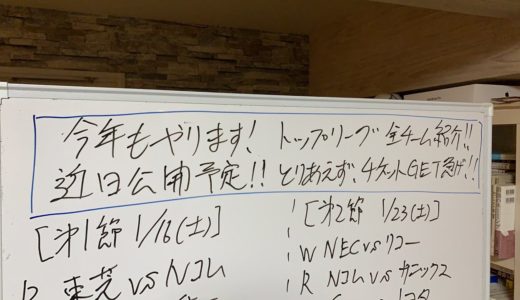 今年もやります! トップリーグ 全チーム紹介!!
近日公開予定!! とりあえず、チケットGET急げ!!
[第1節 1/16(土)]
東芝 vs Nコム
[第2節 1/23(土)]
W NEC vs リコー
R Nコム vs サニックス